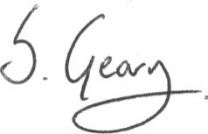 S. Geary